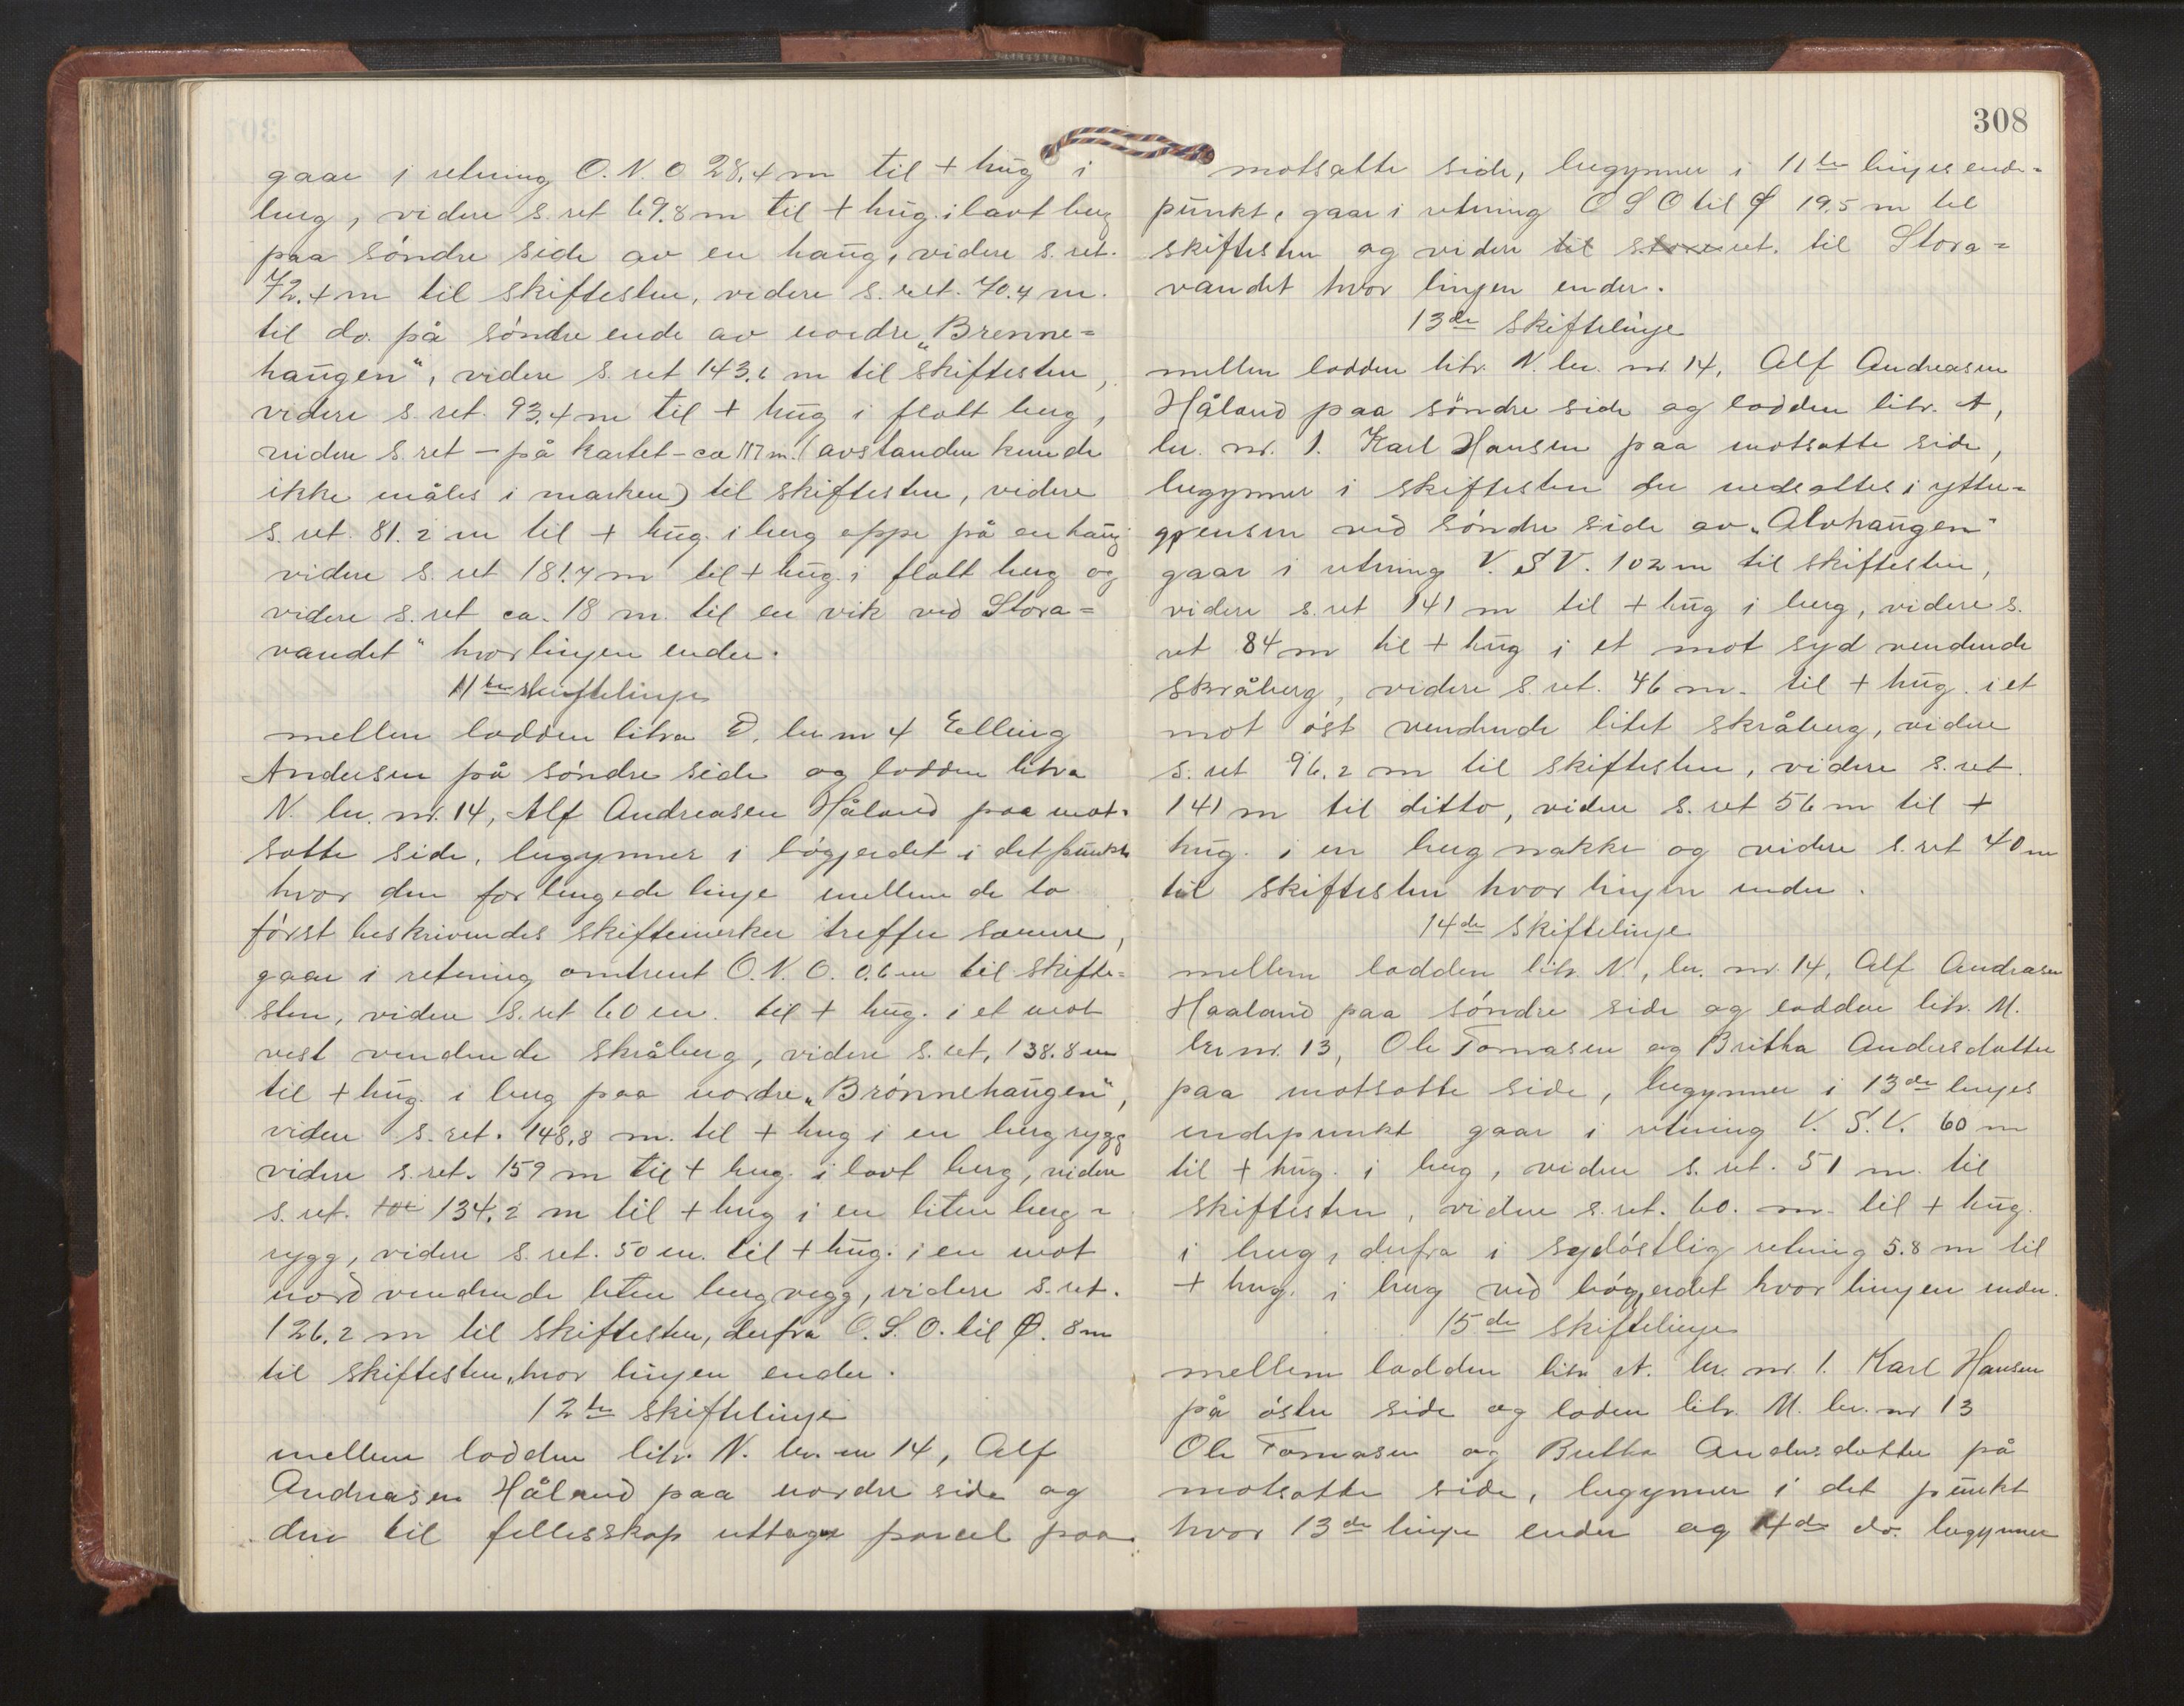 gaar i retning O.N.O 28,4 m til + hug i
berg, videre s. ret 69.8 m til + hug. i lavt berg
paa søndre side av en haug, videre s. ret.
72.4 m til skiftesten, videre s. ret. 70.4 m.
til do. på søndre ende av nordre „Brenne=
haugen“, videre s. ret 143.6 m til skiftesten,
videre s. ret. 93,4 m til + hug i flatt berg,
videre s. ret – på kartet – ca 117 m. (avstanden kunde
ikke måles i marken) til skiftesten, videre
s. ret. 81.2 m til + hug. i berg oppe på en haug
videre s. ret 181.4 m til + hug. i flatt berg og
videre s. ret ca. 18 m. til en vik ved Stora=
vandet“ hvor linjen ender.
11te skiftelinje
mellem lodden litra D, br nr 4 Elling
Andersen på søndre side og lodden litra
N. br. nr. 14, Alf Andreasen Håland paa mot=
satte side, begynner i bøgjerdet i det punkt
hvor den forlengede linje mellem de to
først beskrivendes skiftemerker treffer samme,
gaar i retning omtrent O.N.O. 0.6 m til skifte=
sten, videre s. ret 60 m. til + hug. i et mot
vest vendende skråberg, videre s. ret, 138.8 m
til + hug i berg paa nordre „Brønnehaugen“,
videre s. ret. 148,8 m. til + hug i en bergrygg
videre s. ret. 159 m til + hug. i lavt berg, videre
s. ret. 134,2 m til + hug i en liten berg=
rygg, videre s. ret. 50 m. til + hug. i en mot
nord vendende liten bergvegg, videre s. ret.
126,2 m til skiftesten, derfra O.S.O. til O. 8 m
til skiftesten, hvor linjen ender.
12te skiftelinje
mellem lodden litr. N. br. nr 14, Alf
Andreasen Håland paa nordre side og
den til fellesskap uttagne parcel paa
308
motsatte side, begynner i 11te linjes ende=
punkt, gaar i retning O S O til O 19.5 m til
skiftesten og videre til s. ret. til Stora=
vandet hvor linjen ender.
13de skiftelinje
mellem lodden litr. N. br. nr. 14, Alf Andreasen
Håland paa søndre side og lodden litr. A,
br. nr. 1. Karl Hansen paa motsatte side,
begynner i skiftesten der nedsattes i ytter=
grensen ved søndre side av „Alvhaugen“
gaar i retning V. S V. 102 m til skiftesten,
videre s. ret 141 m til + hug i berg, videre s.
ret 84 m til + hug i et mot syd vendende
skråberg, videre s. ret. 46 m. til + hug. i et
mot øst vendende litet skråberg, videre
s. ret 96,2 m til skiftesten, videre s. ret
141 m til ditto, videre s. ret 56 m til +
hug. i en berg nakke og videre s. ret 40 m
til skiftesten hvor linjen ender.
14de skiftelinje
mellem lodden litr. N, br. nr. 14, Alf Andreasen
Haaland paa søndre side og lodden litr. M.
br. nr. 13, Ole Tomasen og Britha Andersdatter
paa motsatte side, begynner i 13de linjes
endepunkt gaar i retning V. S.V. 60 m
til + hug. i berg, videre s. ret. 51 m. til
skiftesten, videre s. ret. 60. m. til + hug.
i berg, derfra i sydøstlig retning 5.8 m til
+ hug. i berg ved bøgjerdet hvor linjen ender.
15de skiftelinje
mellem lodden litr A. br. nr. 1. Karl Hansen
på østre side og lodden litr. M. br. nr 13
Ole Tomasen og Britha Andersdatter på
motsatte side, begynner i det punkt
hvor 13de linje ender og 14de do. begynner